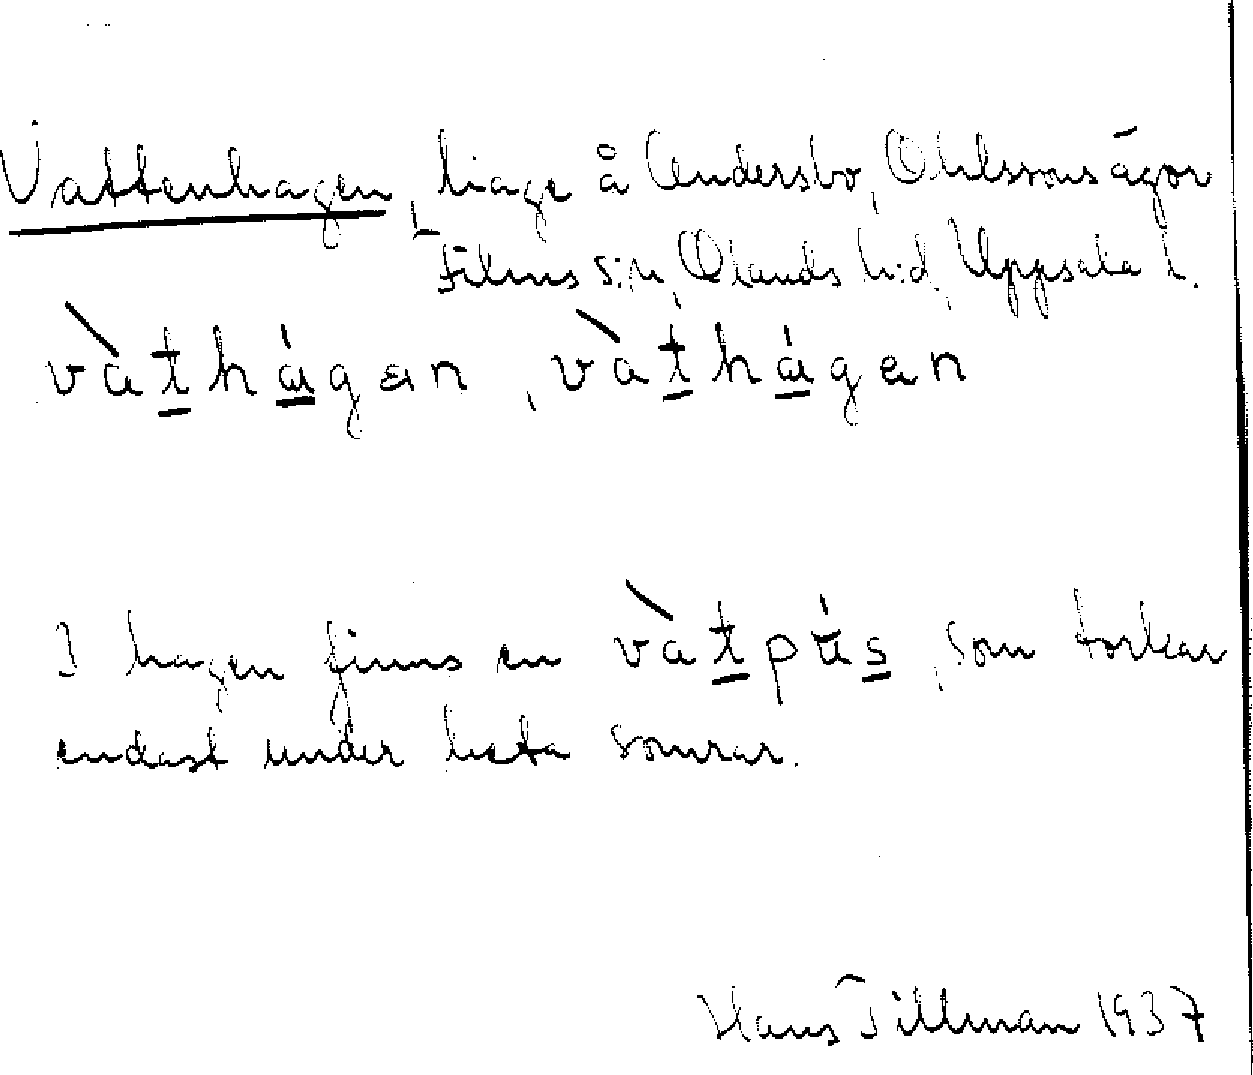 Vattenhagen, hage å Andersbo, Ohlssons ägor
Films s:n, Olands h:d, Uppsala l.
vàthágan, vàthágan
I hagen finns en vàtpús, som torkar
endast under heta somrar.
Hans Tillman 1937